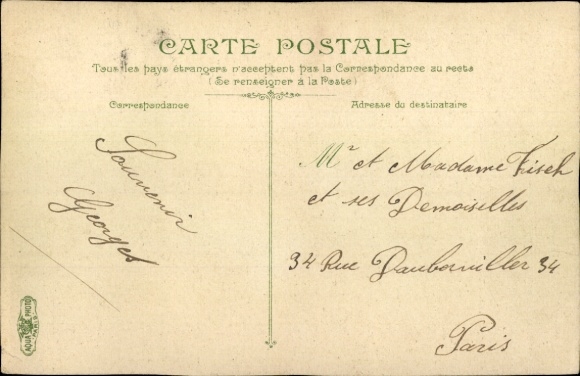 CARTE POSTALE
Tous les pays étrangers n'acceptent pas la Correspondance au recto
(Se renseigner à la Poste)
Correspondance
Adresse du destinataire
Souvenir
Georges
Mr et Madame Fisch
et ses Demoiselles
34 Rue Daubervillier 34
Paris
AQUA PHOTO
PARIS